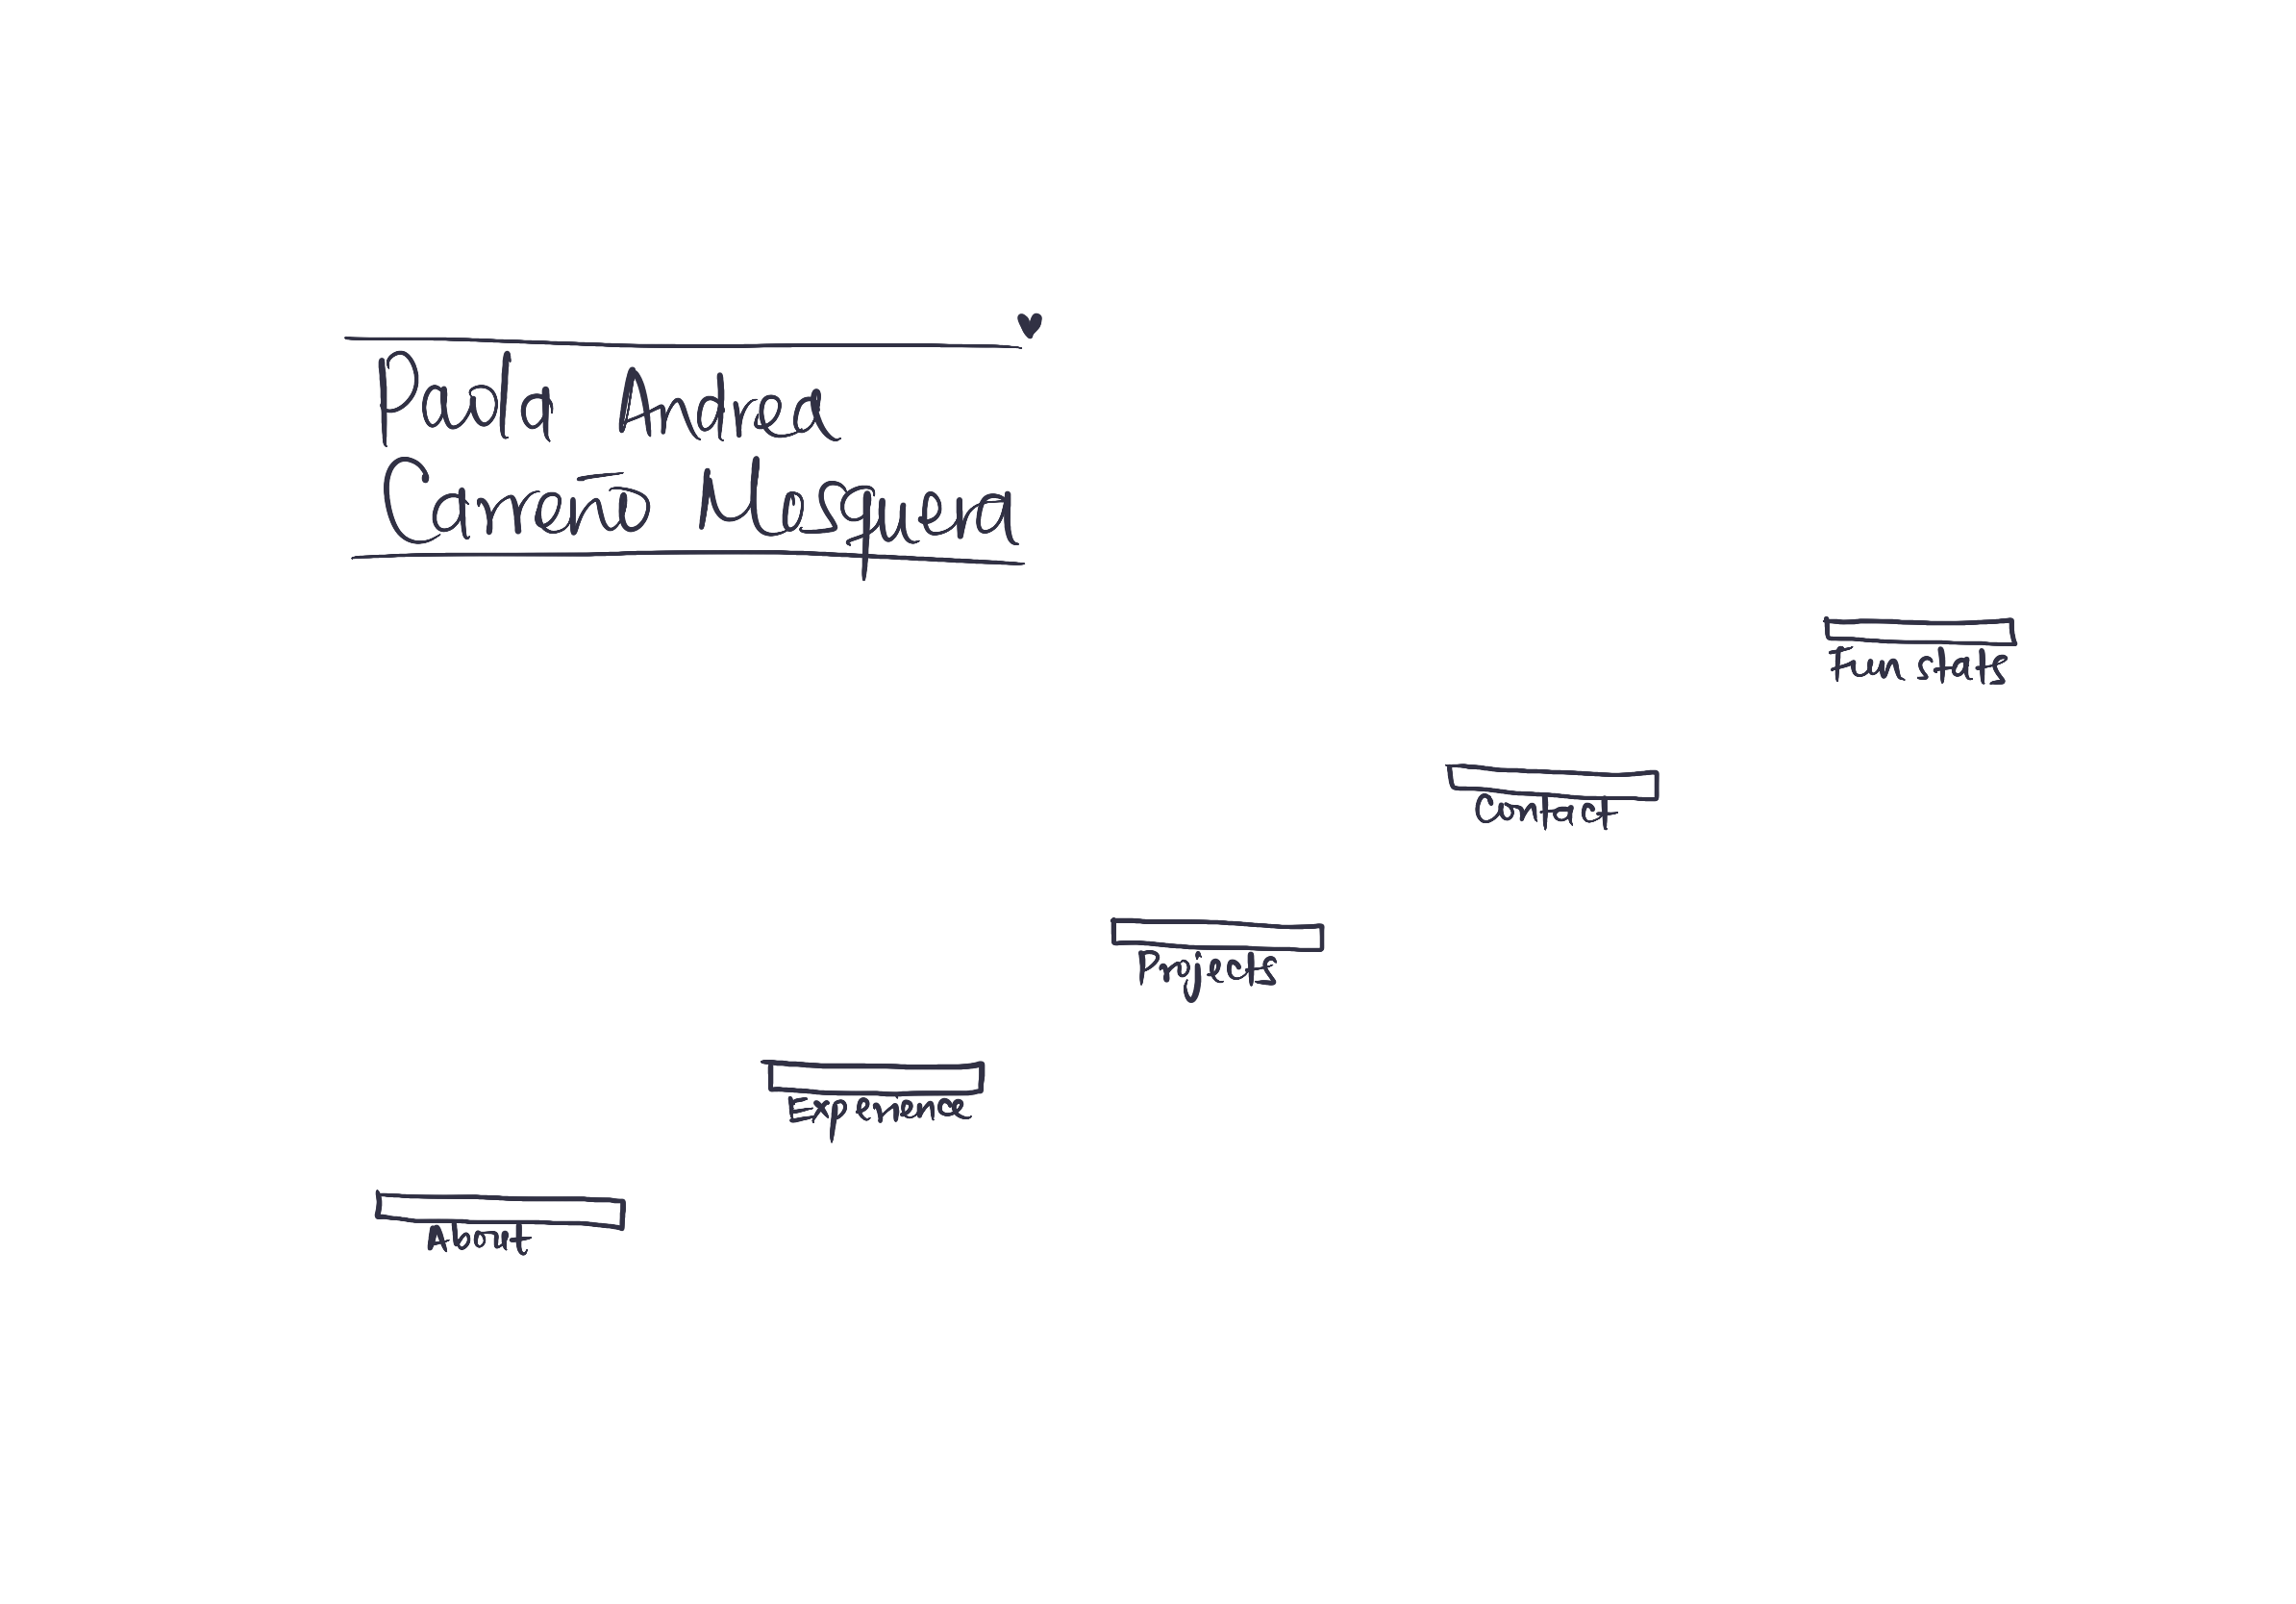 Paola Andrea
Carreño Mosquera
Fun stats
Contact
Projects
Experience
About